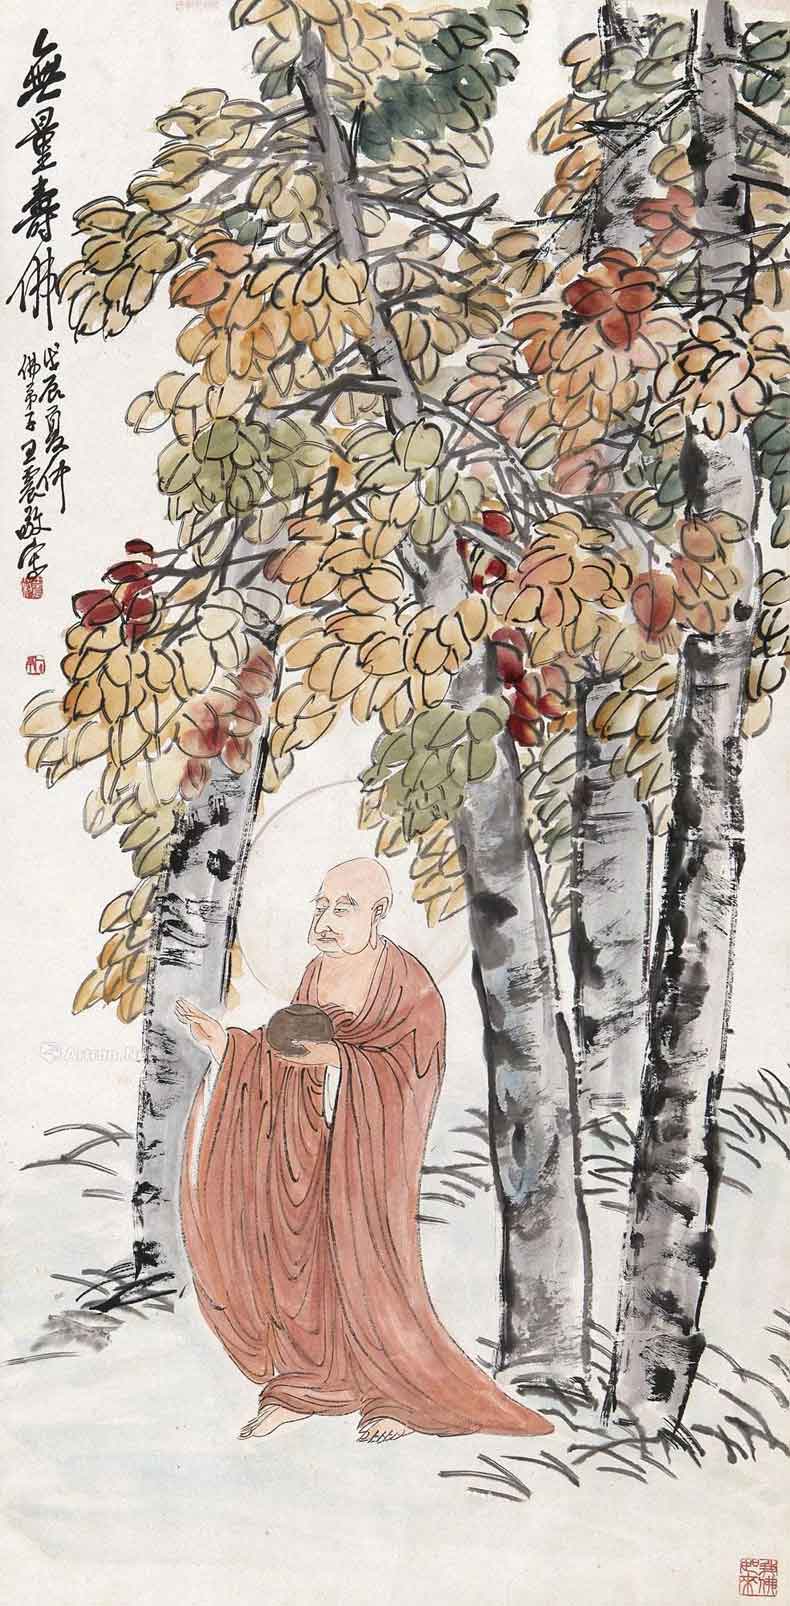 無量壽佛
戊辰夏仲
佛弟子王震敬寫
Artron.Net